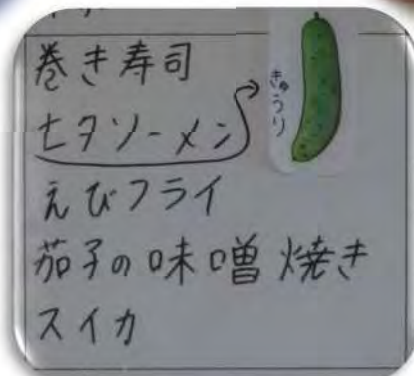 巻き寿司
七夕ソーメン
きゅうり
えびフライ
茄子の味噌焼き
スイカ